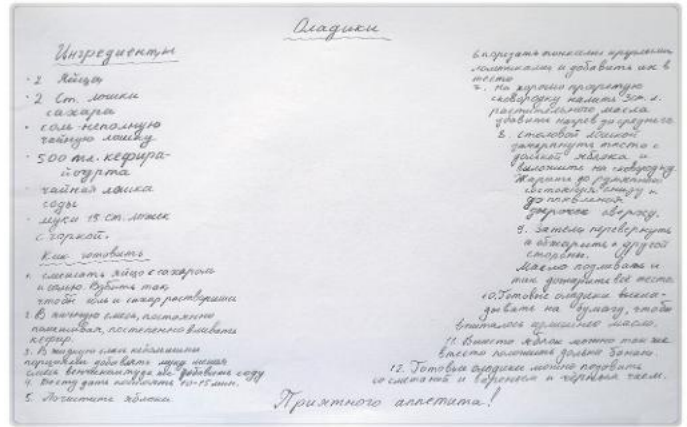 Оладики
Ингредиенты
· 2 яйца
· 2 ст. лошки
сахара
· соль-неполную
чайную лошку
· 500 мл. кефира-
йогурта
· чайная лошка
соды
· муки 15 ст. ложек
с горкой.
Как готовить
1. смешать яйцо с сахаром
и солью. Взбить так
чтобы соль и сахар растворились
2. В яичную смесь, постоянно
помешивая, постепенно вливать
кефир.
3. В жидкую смесь небольшими
порциями добавить муку мешая
смесь венчиком туда же добавить соду
4. Тесту дать постоять 10-15 мин.
5. Почистить яблоки
6. порезать тонкими круглыми
ломтиками и добавить их в
тесто
7. на хорошо прогретую
сковородку налить 3 ст. л.
растительного масла
убавить нагрев до среднего.
8. столовой ложкой
зачерпнуть тесто с
долькой яблока и
выложить на сковороду
Жарить до румяного
состояния снизу и
до появления
дырочек сверху.
9. затем перевернуть
и обжарить с другой
стороны.
Масло подливать и
так дожарить всё тесто.
10. Готовые оладики выкла-
дывать на бумагу, чтобы
впиталось излишнее масло.
11. Вместо яблок можно так же
в тесто положить дольки банан.
12. Готовые оладики можно подавать
со сметаной и вареньем и чёрным чаем.
Приятного аппетита!